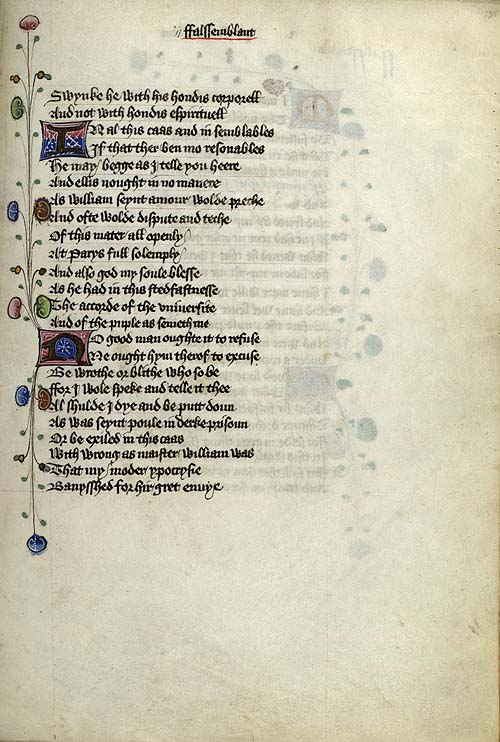 ffalssemblant
Swynke he with his hondis corporell
And not with hondis espirituell
IN al this caas and in semblables
If that ther ben mo resonables
He may begge as I telle you heere
And ellis nought in no manere
As William seynt amour wolde preche
And ofte wolde dispute and teche
Of this mater all openly
At Parys full solempnly
And also god my soule blesse
As he had in this stedfastnesse
The accorde of the vniuersite
And of the puple as semeth me
NO good man oughte it to refuse
Ne ought hym therof to excuse
Be wrothe or blithe who so be
ffor I wole speke and telle it thee
Al shulde I dye and be putt doun
As was seynt poule in derke prisoun
Or be exiled in this caas
With wrong as maister William was
That my moder ypocrysie
Banysshed for hir gret enuye